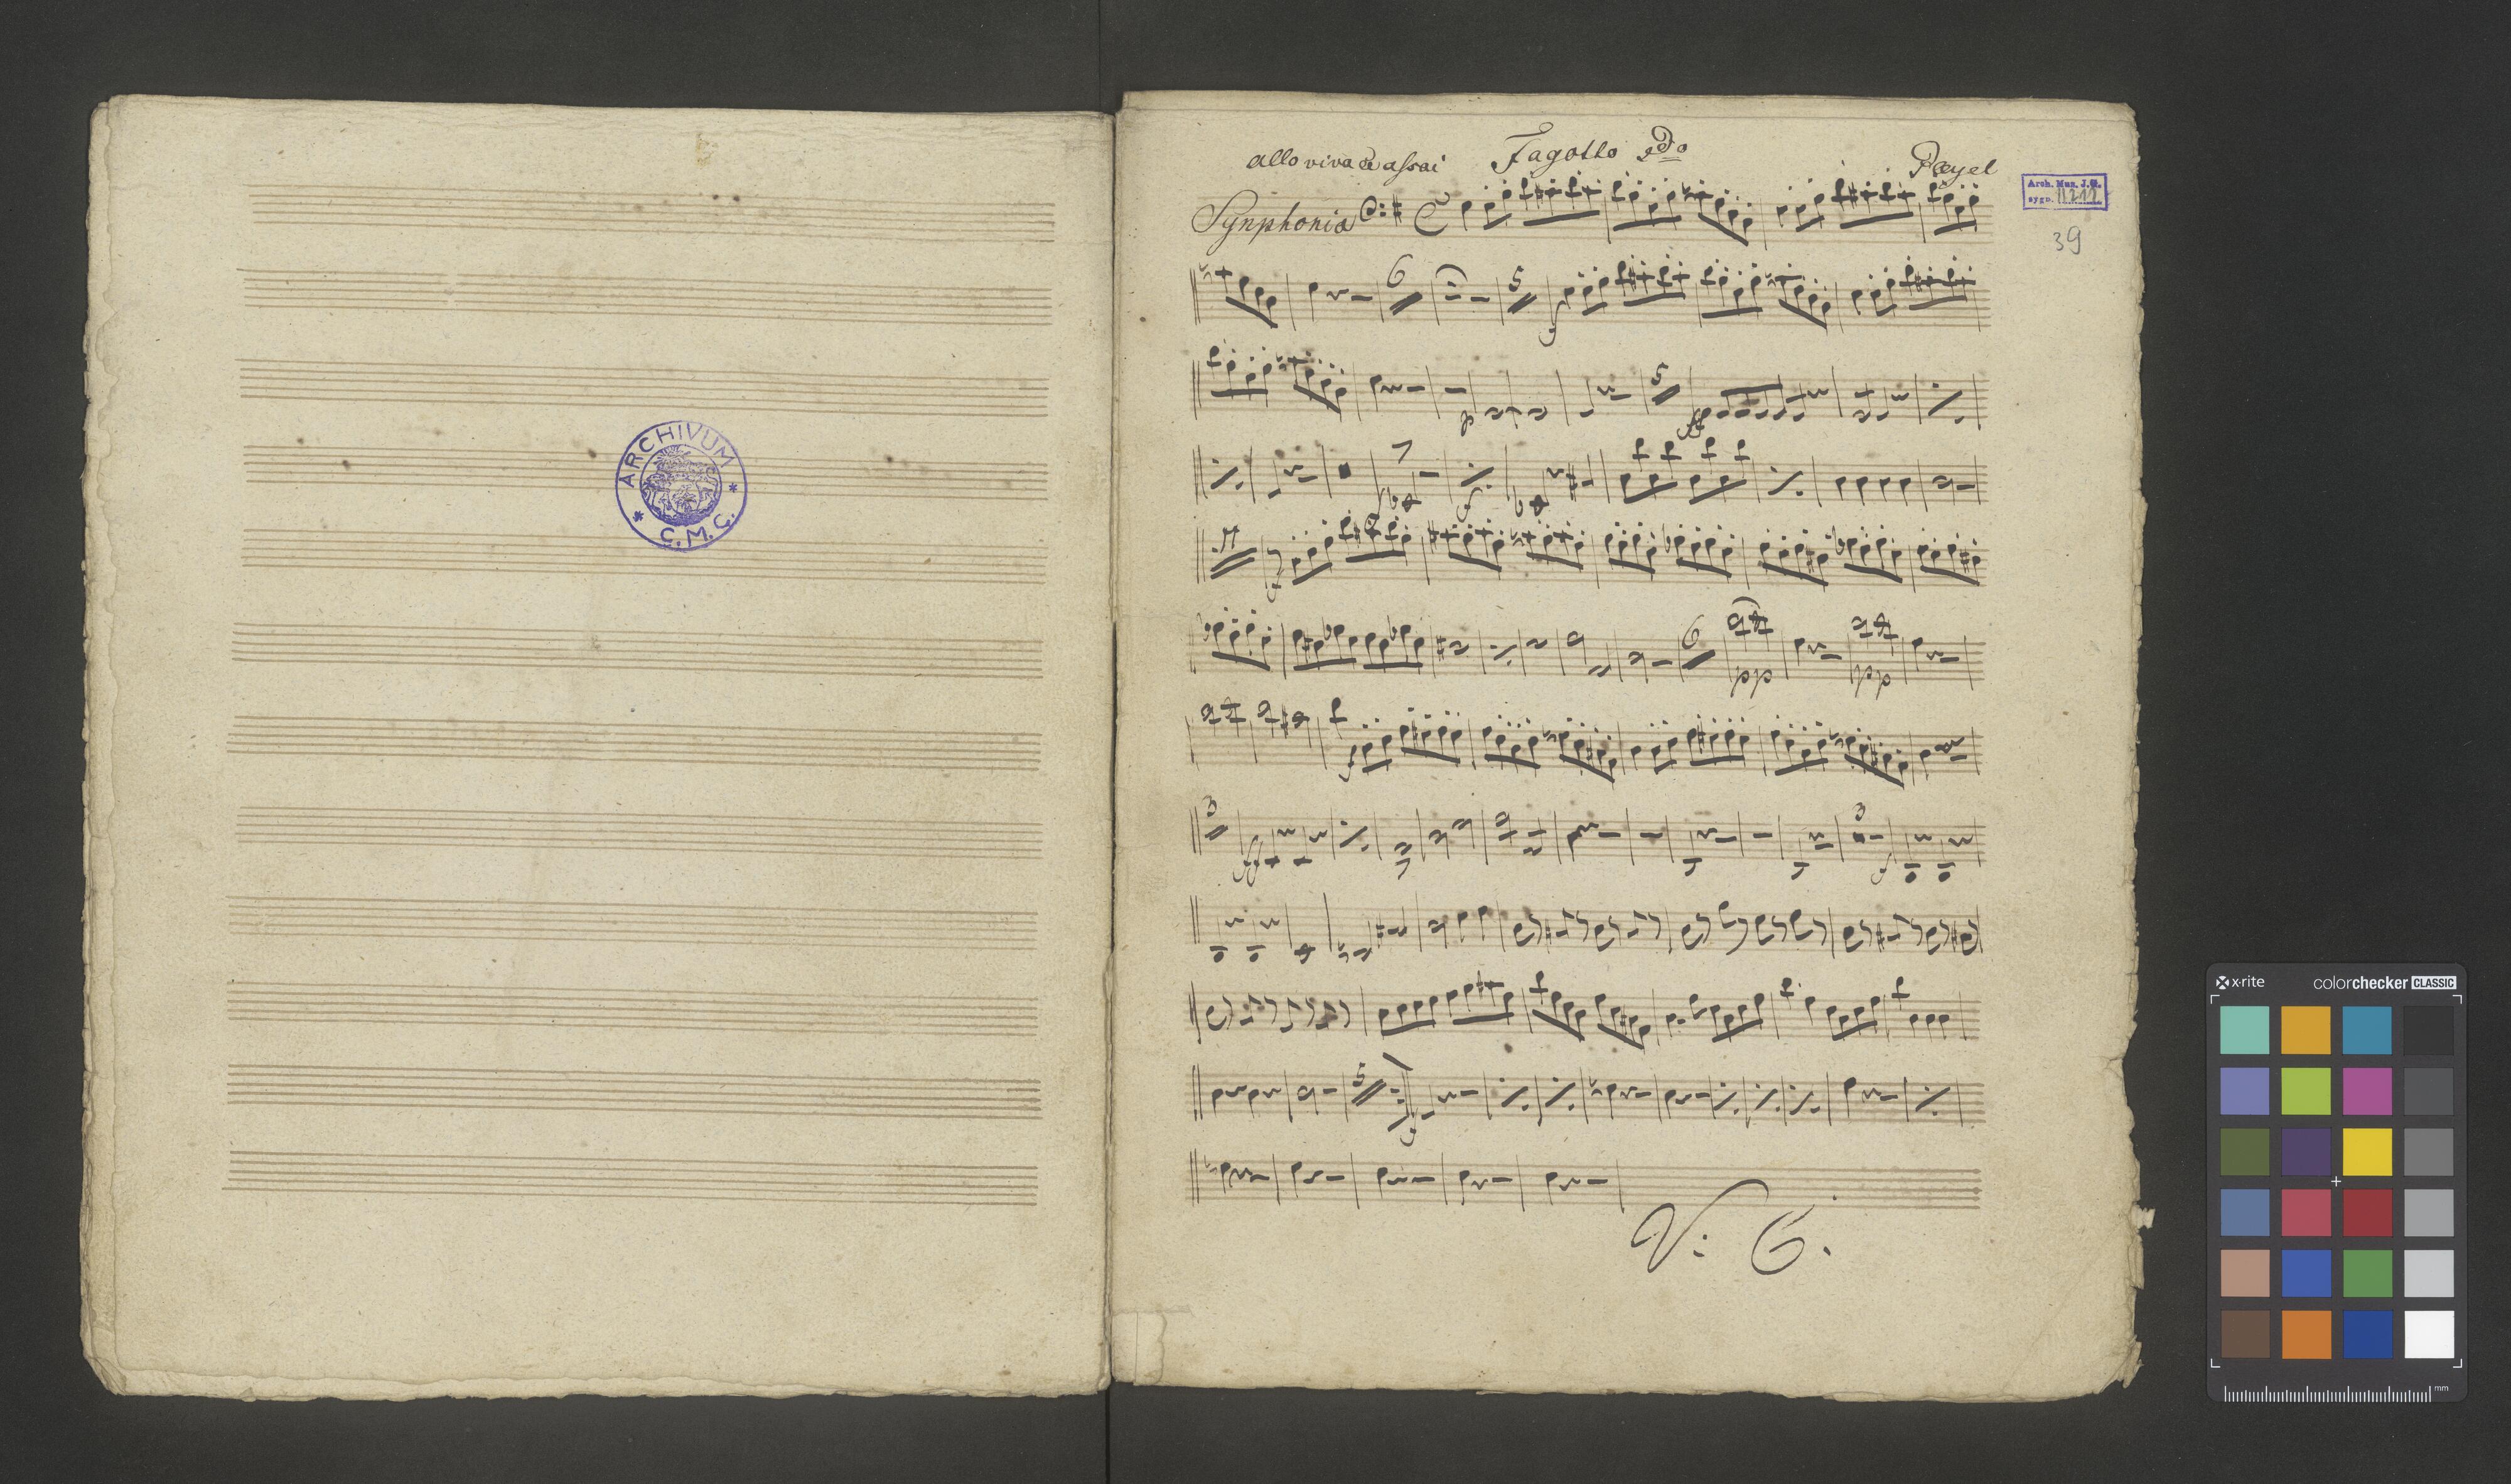 ARCHIVUM
* C. M. C. *
Fagotto 2do
allo vivace assai
Pleyel
Synphonia
Arch. Muz. J.G.
sygn. II 212
39
6
5
f
p
5
ff
7
f
f
f
6
pp
pp
f
3
ff
3
f
5
f
V: S.
x-rite
colorchecker CLASSIC
mm